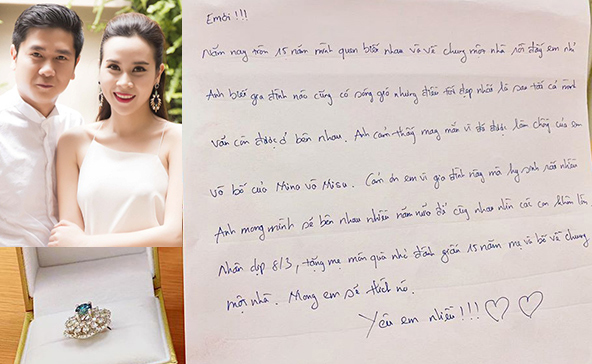 Em ơi !!!
Năm nay tròn 15 năm mình quen biết nhau và về chung một nhà rồi đấy em nhỉ
Anh biết gia đình nào cũng có sóng gió nhưng điều tốt đẹp nhất là sau tất cả mình
vẫn còn được ở bên nhau. Anh cảm thấy may mắn vì đã được làm chồng của em
và bố của Mina và Misu. Cảm ơn em vì gia đình này mà hy sinh rất nhiều
Anh mong mình sẽ bên nhau nhiều năm nữa để cùng nhau nhìn các con khôn lớn.
Nhân dịp 8/3, tặng mẹ món quà nhỏ đánh dấu 15 năm mẹ và bố về chung
một nhà. Mong em sẽ thích nó.
Yêu em nhiều !!!